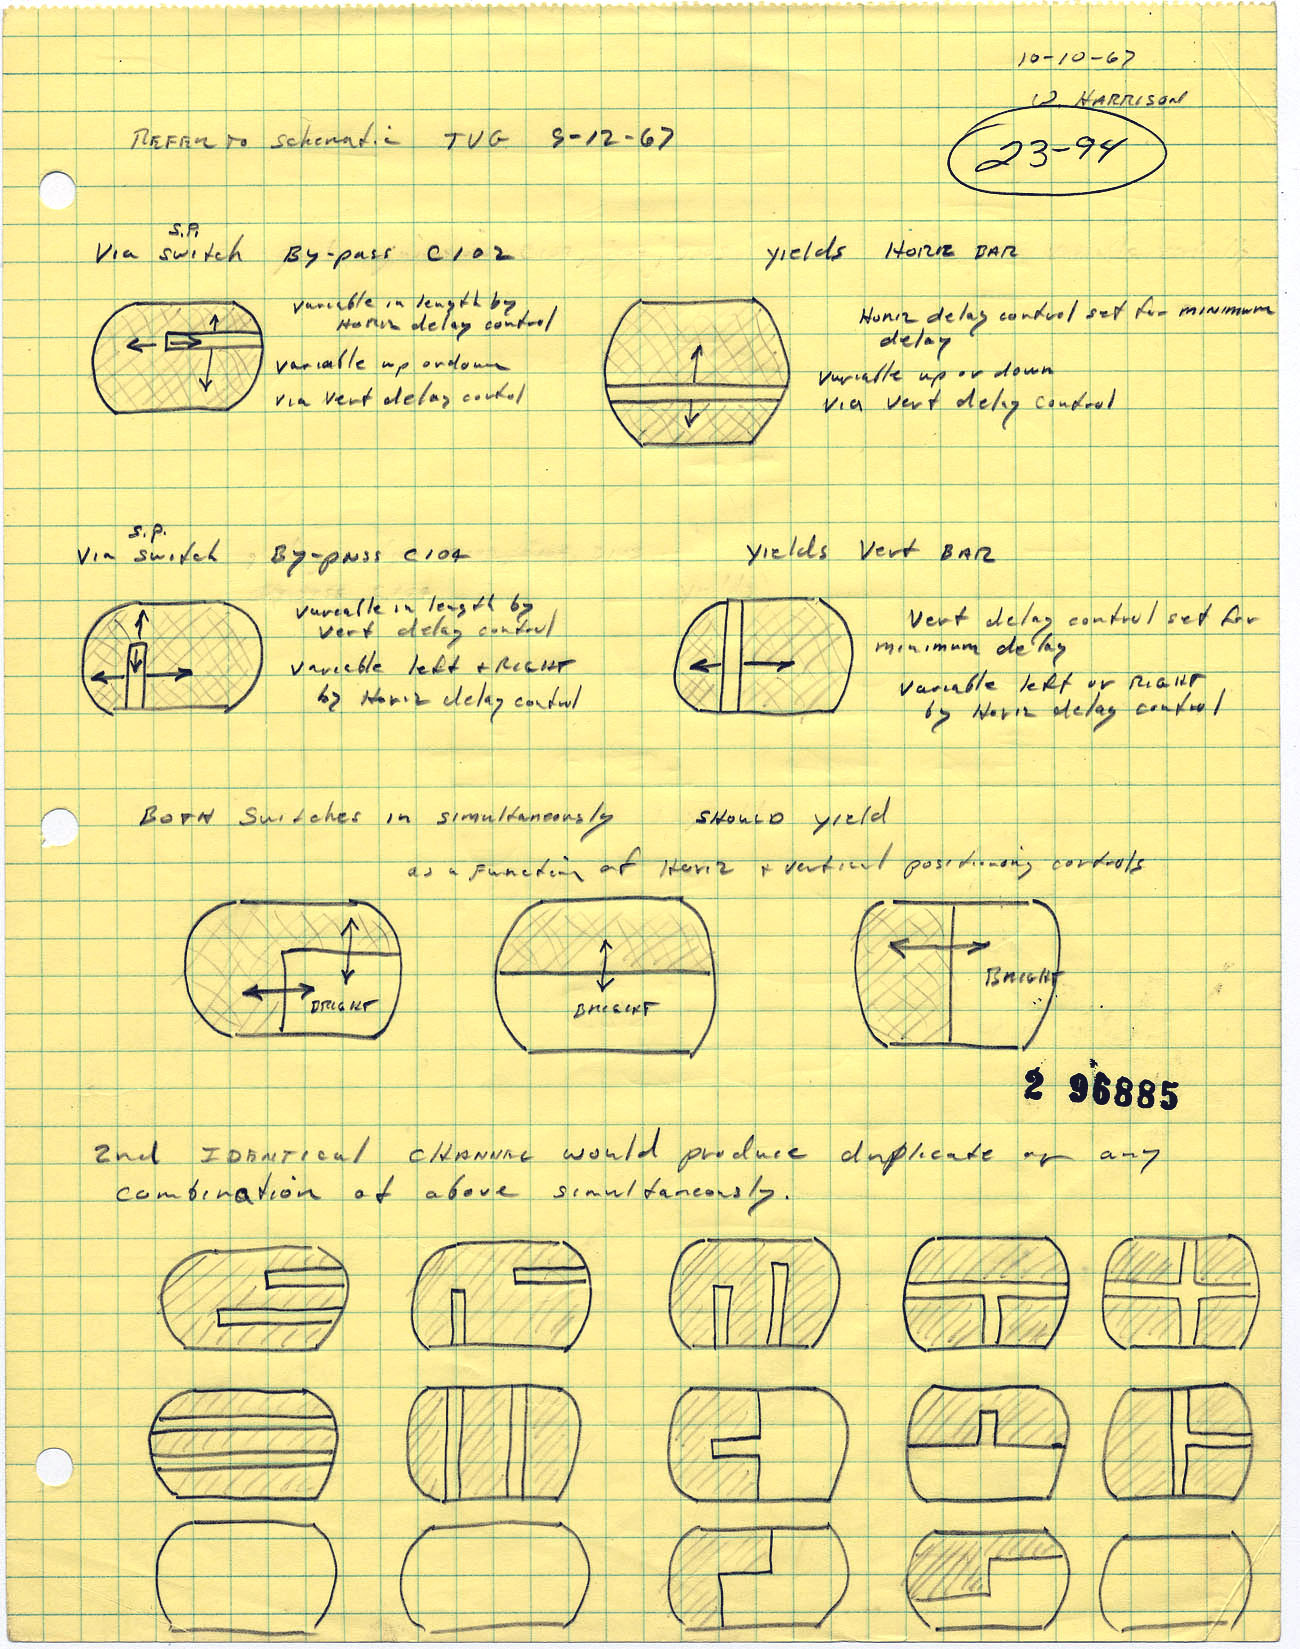 10-10-67
W. HARRISON
23-94
REFER TO schematic TVG 9-12-67
S.P.
Via switch By-pass C102
yields HORIZ BAR
variable in length by
HORIZ delay control
variable up or down
via vert delay control
Horiz delay control set for minimum
delay
variable up or down
via vert delay control
S.P.
Via switch By-pass C104
yields Vert BAR
variable in length by
vert delay control
variable left + RIGHT
by Horiz delay control
Vert delay control set for
minimum delay
variable left or RIGHT
by Horiz delay control
BOTH Switches in simultaneously SHOULD yield
as a Function of Horiz + vertical positioning controls
BRIGHT
BRIGHT
BRIGHT
2 96885
2nd IDENTICAL CHANNEL would produce duplicate or any
combination of above simultaneously.